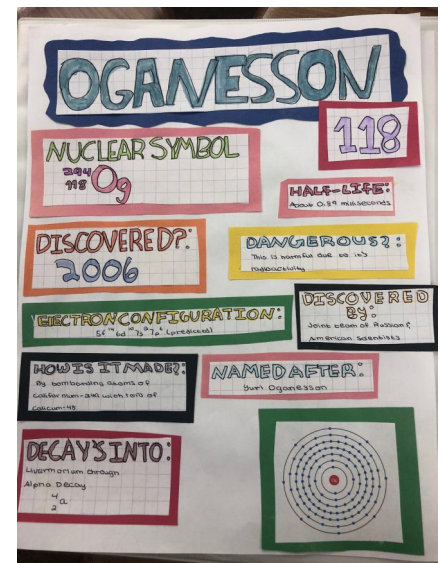 OGANESSON
118
NUCLEAR SYMBOL
294
118 Og
HALF-LIFE:
About 0.89 milliseconds
DISCOVERED?:
2006
DANGEROUS?:
This is harmful due to its
radioactivity
ELECTRON CONFIGURATION:
5f¹⁴ 6d¹⁰ 7s² 7p⁶ (predicted)
DISCOVERED
By:
Joint team of Russian &
American scientists
HOW IS IT MADE?:
By bombarding atoms of
Californium-249 with ions of
Calcium-48
NAMED AFTER:
Yuri Oganesson
DECAY'S INTO:
Livermorium through
Alpha Decay
4
2 α